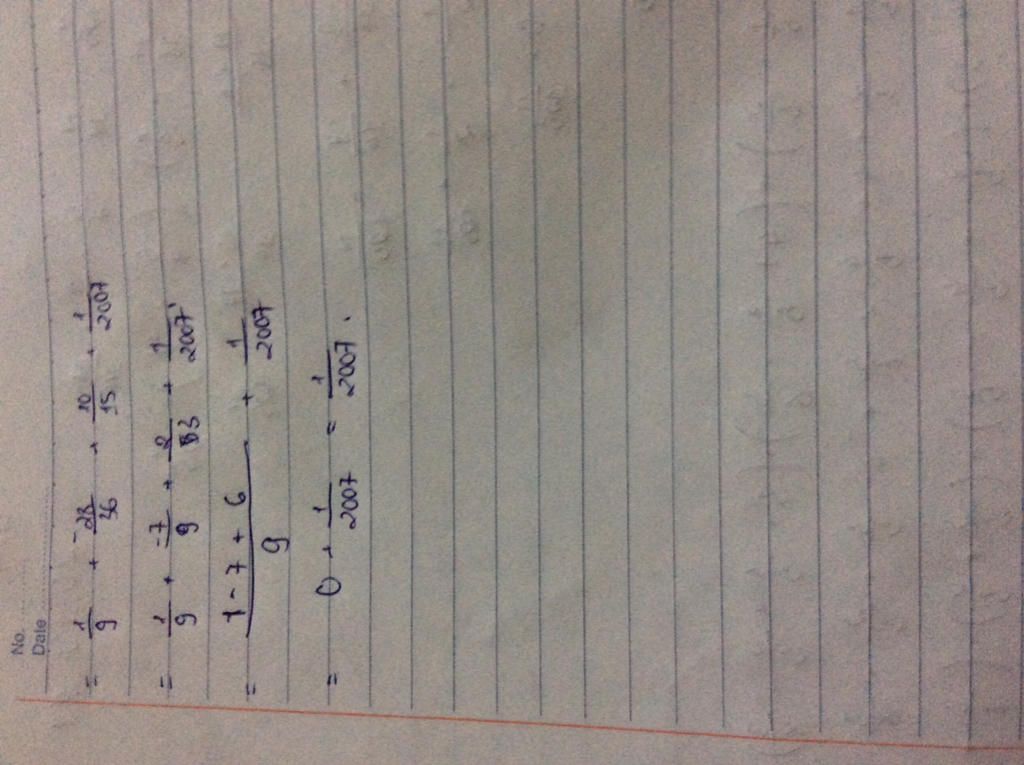 No.
Date
= 1/9 + -28/36 + 10/15 + 1/2007
= 1/9 + -7/9 + 2/3 + 1/2007
= (1 - 7 + 6)/9 + 1/2007
= 0 + 1/2007 = 1/2007.